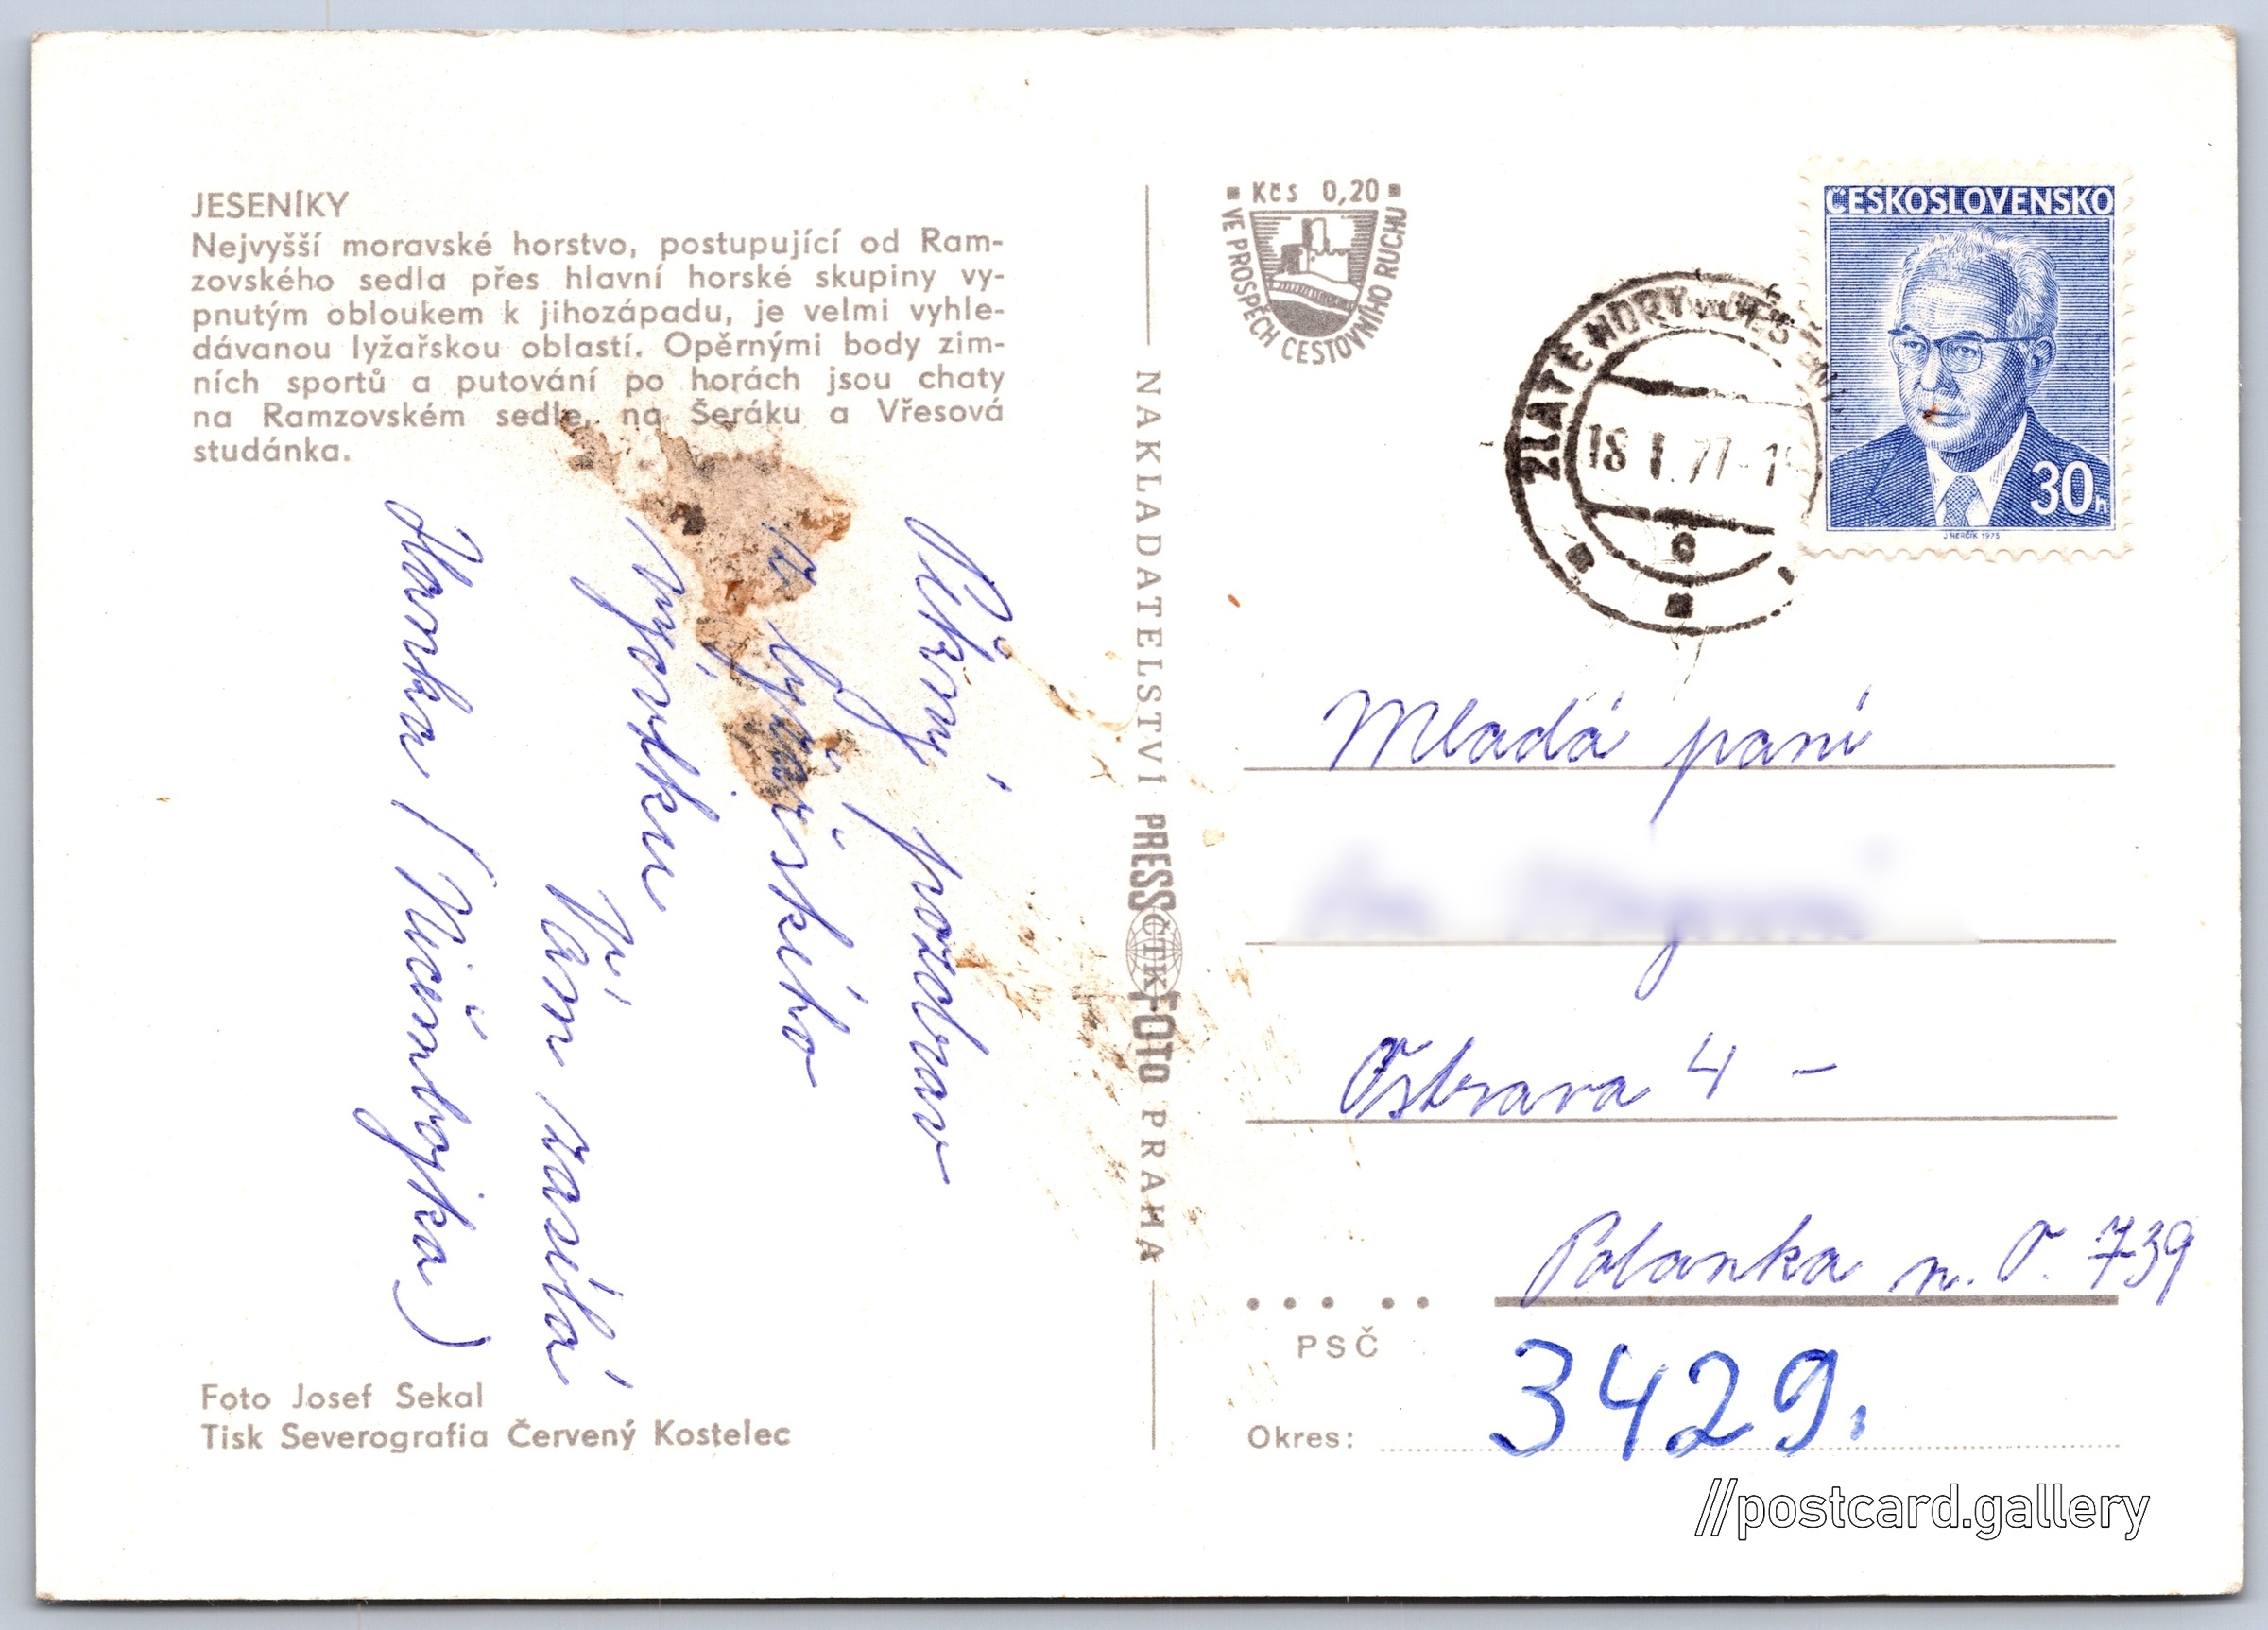 JESENÍKY
Nejvyšší moravské horstvo, postupující od Ram-
zovského sedla přes hlavní horské skupiny vy-
pnutým obloukem k jihozápadu, je velmi vyhle-
dávanou lyžařskou oblastí. Opěrnými body zim-
ních sportů a putování po horách jsou chaty
na Ramzovském sedle, na Šeráku a Vřesová
studánka.
Pěkný pozdrav
z lyžařského
výcviku
Vám zasílá
Hanka
Foto Josef Sekal
Tisk Severografia Červený Kostelec
NAKLADATELSTVÍ PRESSFOTO PRAHA
ČTK
Kčs 0,20
VE PROSPĚCH CESTOVNÍHO RUCHU
ZLATÉ HORY
18 I. 77-1
c
ČESKOSLOVENSKO
30h
J. HERČÍK 1975
Mladá paní
Ostrava 4 -
Polanka n. O. 739
PSČ
3429.
Okres:
//postcard.gallery